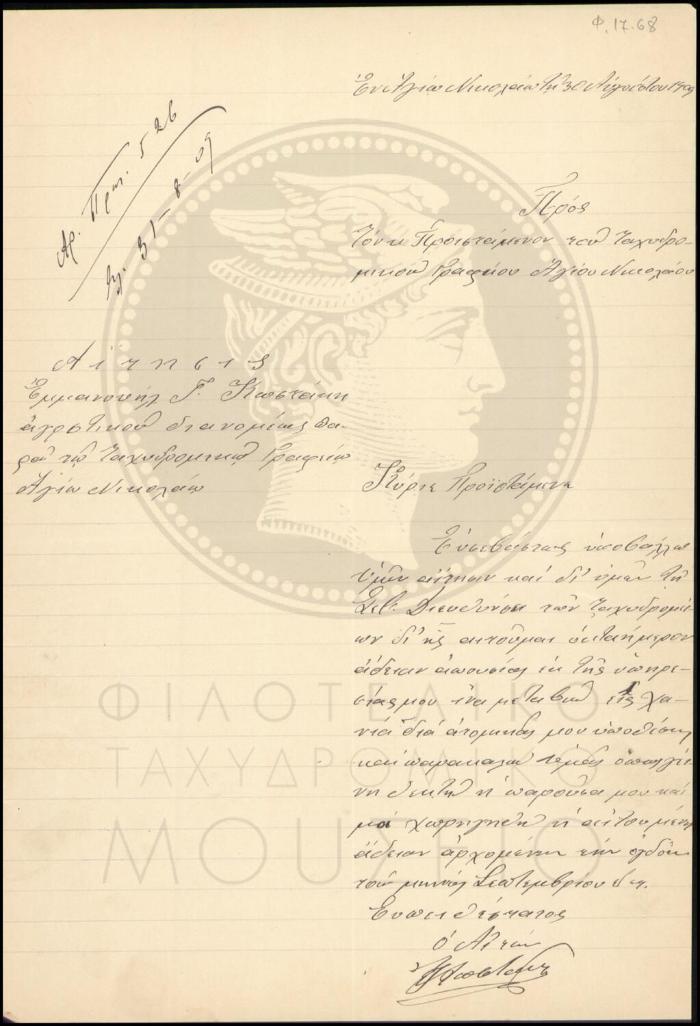 Φ.17.68
Ἐν Ἁγίῳ Νικολάῳ τῇ 30 Αὐγούστου 1909
Ἀρ. Πρωτ. 526
31-8-09
Πρός
τόν κ. Προϊστάμενον τοῦ Ταχυδρο-
μικοῦ Γραφείου Ἁγίου Νικολάου
Αἴτησις
Ἐμμανουήλ Γ. Κωστάκη
ἀγροτικοῦ διανομέως πα-
ρά τῷ Ταχυδρομικῷ Γραφείῳ
Ἁγίου Νικολάου
Κύριε Προϊστάμενε
Εὐσεβάστως ὑποβάλλω
ὑμῖν αἴτησιν καί δι' ὑμῶν τῇ
Σεβ. Διευθύνσει τῶν Ταχυδρομεί-
ων δι' ἧς αἰτοῦμαι ὀκταήμερον
ἄδειαν ἀπουσίας ἐκ τῆς ὑπηρε-
σίας μου ἵνα μεταβῶ εἰς Χα-
νιά διά ἀτομικάς μου ὑποθέσεις
καί παρακαλῶ ὅπως γεί-
νῃ δεκτή ἡ παροῦσα μου καί
μοί χορηγηθῇ ἡ αἰτουμένη
ἄδεια ἀρχομένη τήν ὀγδόη
τοῦ μηνός Σεπτεμβρίου
Εὐπειθέστατος
ὁ Αἰτῶν
Κωστάκης
ΦΙΛΟΤΕΛΙΚΟ
ΤΑΧΥΔΡΟΜΙΚΟ
ΜΟΥΣΕΙΟ